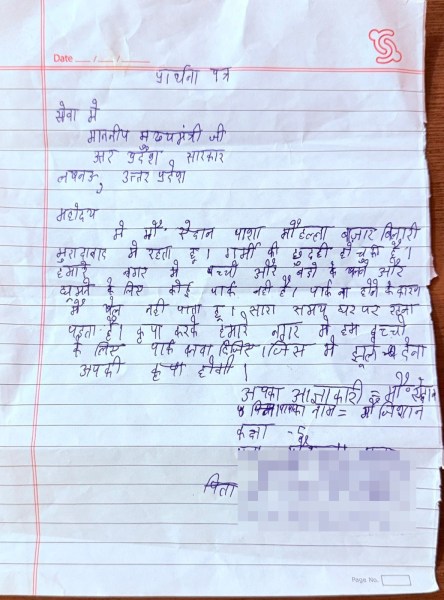 Date ___/___/___
प्रार्थना पत्र
सेवा में
माननीप मुख्यमंत्री जी
प्रदेश सारकार
लखनऊ, उत्तर प्रदेश
महोदय
मे मौ पाशा मौहल्ला बाजार
मुरादाबाद में रहता हू। गर्मी की छुटटी हो चुकी है।
हमारे नगर मे बच्चो और के और
के लिए कोई पार्क नही है। पार्क ना होने के कारण
मैं खेल नही पाता हू। सारा समय घर पर रहना
पड़ता है। कृपा करके हमारे नगर मे हम बच्चो
के लिए पार्क दिजिए। जिस मे झूले
आपकी कृपा होगी।
आपका आज्ञाकारी = मौ.
का नाम = मौ जिशान
कक्षा -
पिता
Page No.